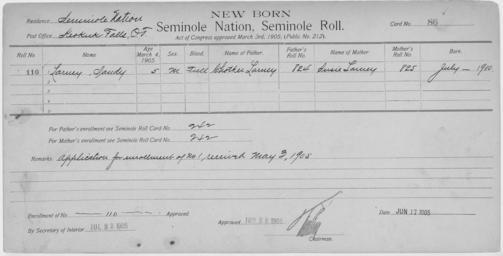 NEW BORN
Residence, Seminole Nation
Seminole Nation, Seminole Roll.
Card No. 86
Post Office, Keokuk Falls, O.T.
Act of Congress approved March 3rd, 1905 (Public No. 212).
Roll No Name Age March 4, 1905 Sex. Blood. Name of Father. Father's Roll No. Name of Mother Mother's Roll No. Born.
110 Larney, Sandy 5 M Full Chotkey Larney 824 Susie Larney 825 July - 1900
2
3
4
5
For Father's enrollment see Seminole Roll Card No. 242
For Mother's enrollment see Seminole Roll Card No. 242
Remarks Application for enrollment of No 1, received May 3, 1905
Enrollment of No. 110 Approved
By Secretary of Interior JUL 22 1905
Approved 1905
Chairman.
Date JUN 17 1905